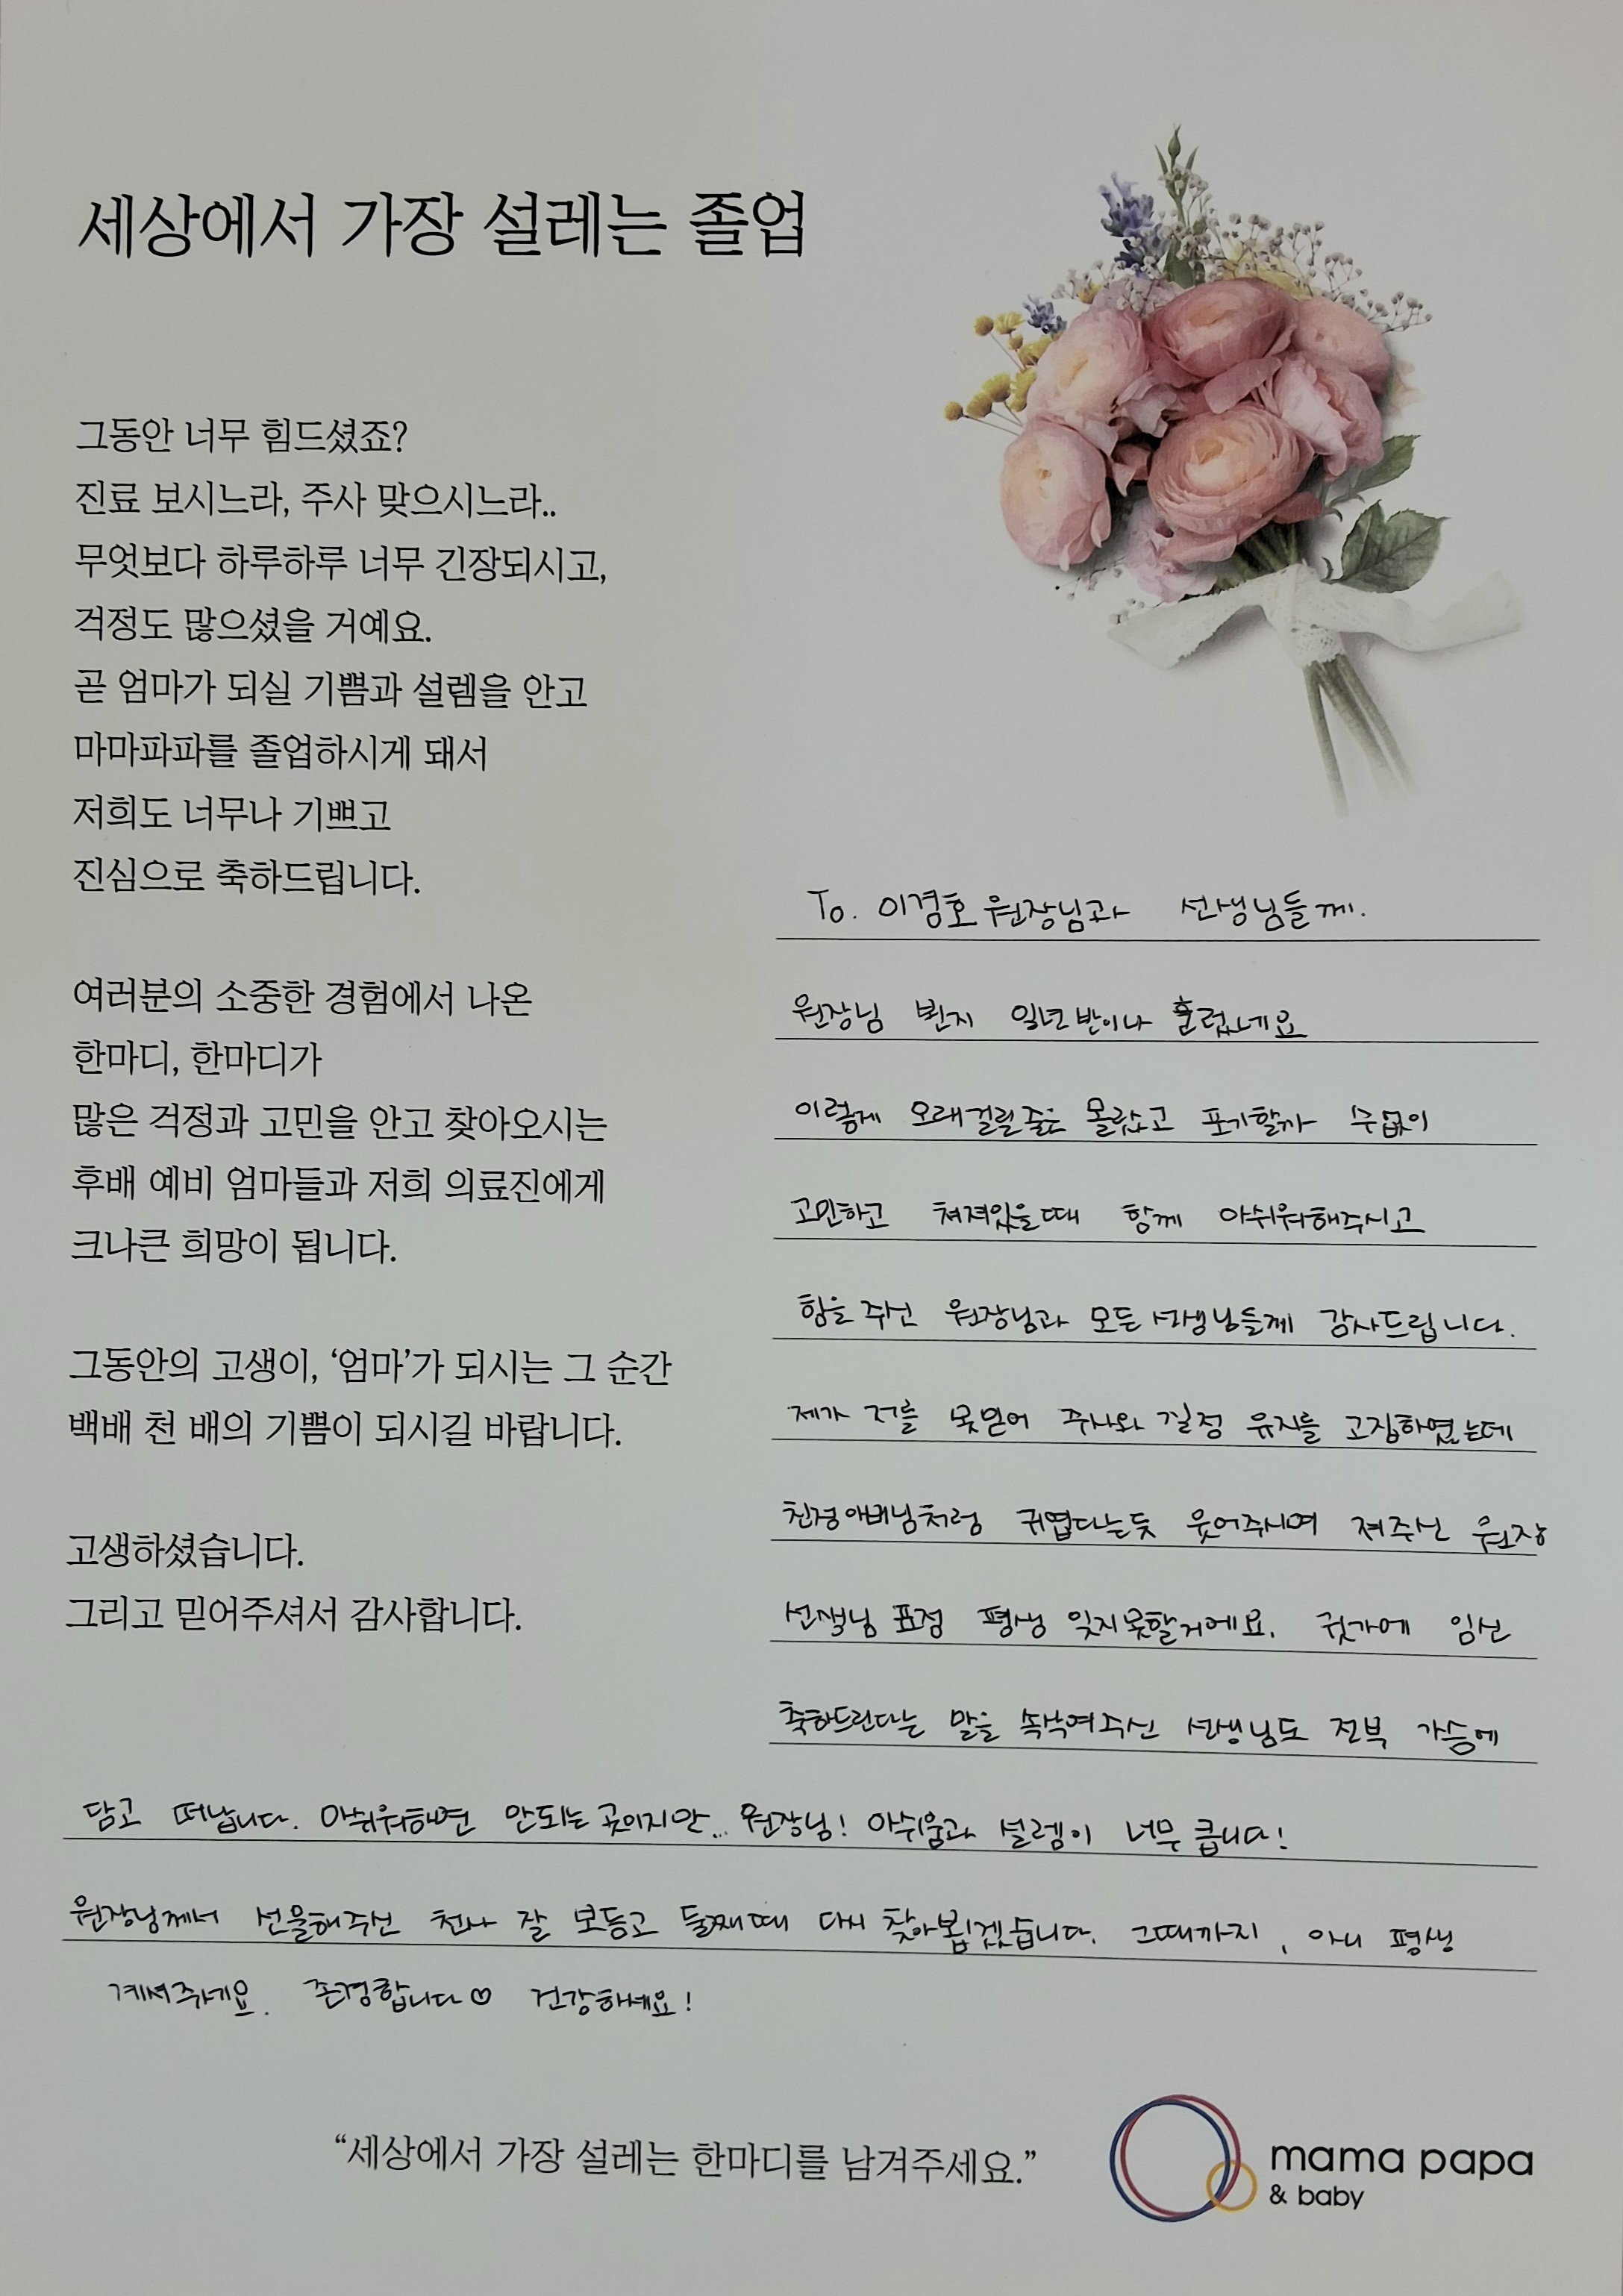 세상에서 가장 설레는 졸업
그동안 너무 힘드셨죠?
진료 보시느라, 주사 맞으시느라..
무엇보다 하루하루 너무 긴장되시고,
걱정도 많으셨을 거예요.
곧 엄마가 되실 기쁨과 설렘을 안고
마마파파를 졸업하시게 돼서
저희도 너무나 기쁘고
진심으로 축하드립니다.
여러분의 소중한 경험에서 나온
한마디, 한마디가
많은 걱정과 고민을 안고 찾아오시는
후배 예비 엄마들과 저희 의료진에게
크나큰 희망이 됩니다.
그동안의 고생이, ‘엄마’가 되시는 그 순간
백배 천 배의 기쁨이 되시길 바랍니다.
고생하셨습니다.
그리고 믿어주셔서 감사합니다.
To. 이경호 원장님과 선생님들께.
원장님 뵌지 일년반이나 흘렀네요
이렇게 오래걸릴줄은 몰랐고 포기할까 수없이
고민하고 쳐져있을때 함께 아쉬워해주시고
힘을 주신 원장님과 모든 선생님들께 감사드립니다.
제가 저를 못믿어 주사와 질정 유지를 고집하였는데
친정아버님처럼 귀엽다는듯 웃어주시며 져주신 원장
선생님 표정 평생 잊지못할거에요. 귓가에 임신
축하드린다는 말을 속삭여주신 선생님도 전부 가슴에
담고 떠납니다. 아쉬워하면 안되는 곳이지만... 원장님! 아쉬움과 설렘이 너무 큽니다!
원장님께서 선물해주신 천사 잘 보듬고 둘째때 다시 찾아뵙겠습니다. 그때까지, 아니 평생
계셔주세요. 존경합니다♡ 건강하세요!
“세상에서 가장 설레는 한마디를 남겨주세요.”
mama papa
& baby